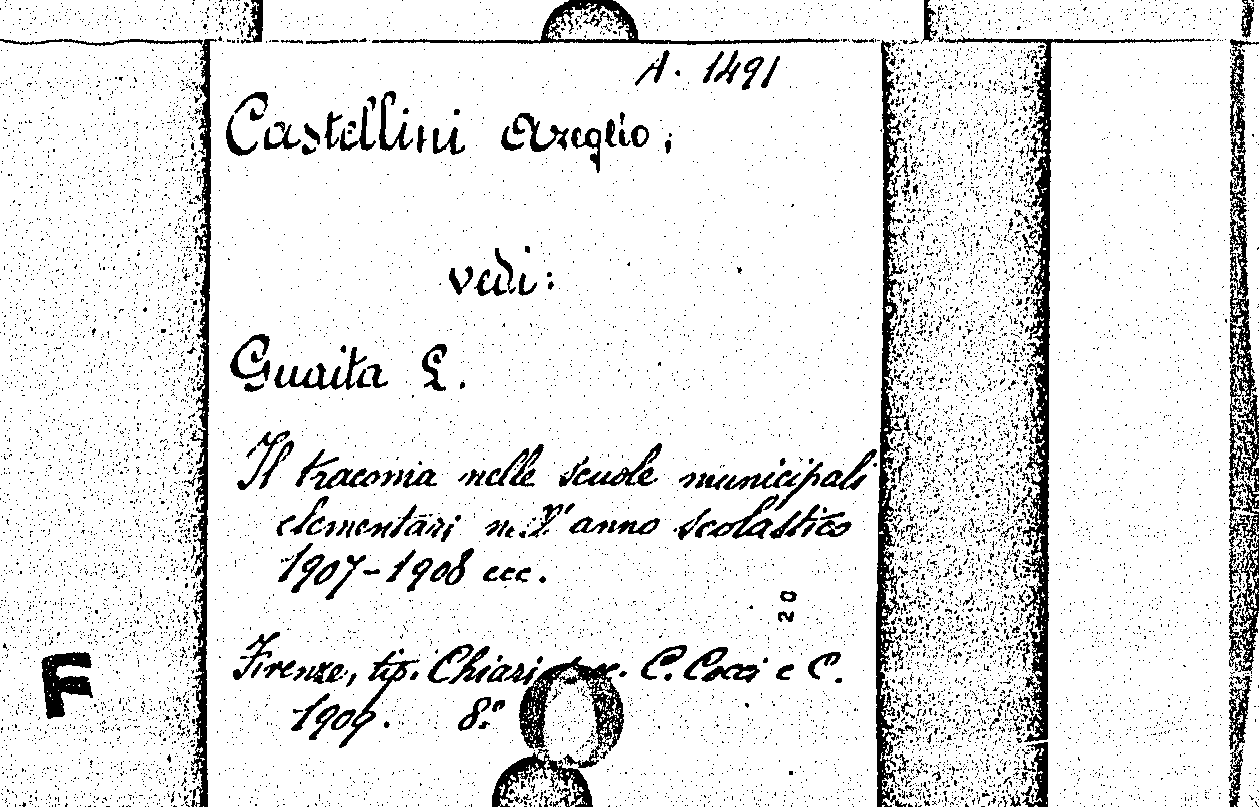 A. 1491
Castellini Azeglio,
vedi:
Guaita L.
Il tracoma nelle scuole municipali
elementari nell'anno scolastico
1907-1908 ecc.
20
Firenze, tip. Chiari succ. C. Cocci e C.
1909. 8.°
F